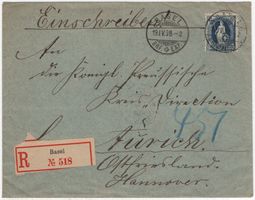 Einschreiben!
BASEL
19.IV.98.-2
An
die Königl. Preussische
Kreis-Direction
Aurich
457
Ostfriesland.
Hannover.
R
Basel
№ 518